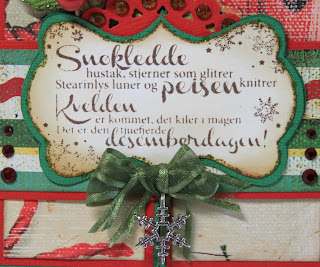 Snøkledde
hustak, stjerner som glitrer
Stearinlys luner og peisen knitrer
Kvelden
er kommet, det kiler i magen
Det er den tjuefjerde
desemberdagen!